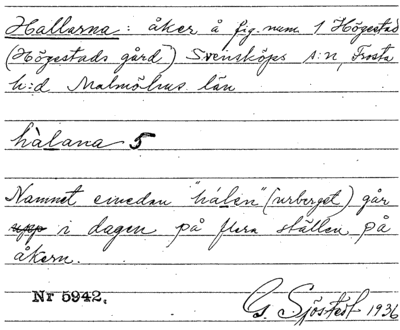 Hallarna: åker å fig. num 1 Högestad
(Högestads gård) Svensköps s:n, Frosta
h:d Malmöhus län
hàlana 5
Namnet emedan "hálen" (urberget) går
upp i dagen på flera ställen på
åkern.
Nr 5942.
G. Sjöstedt 1936